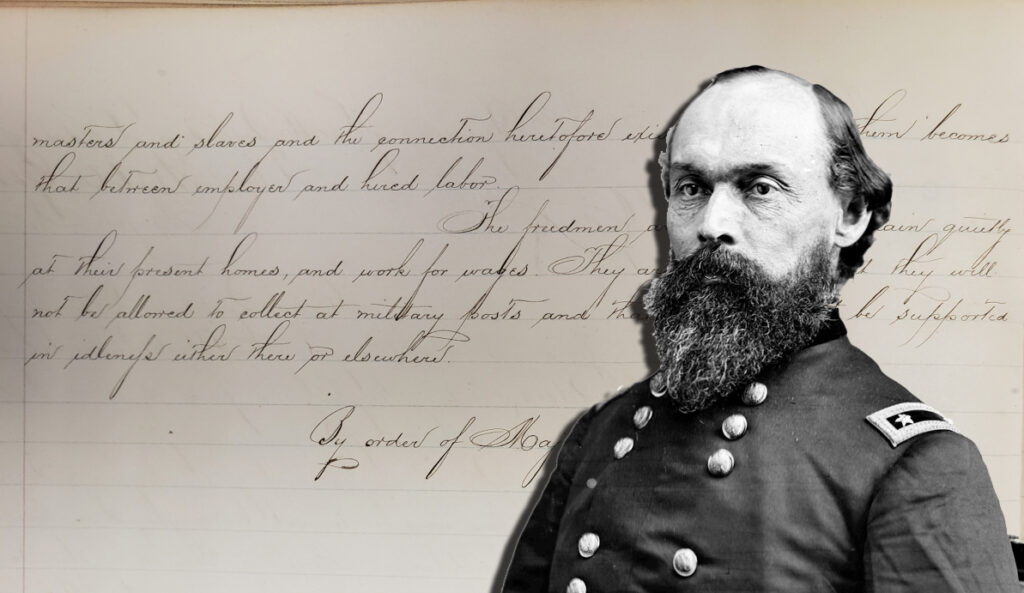 masters and slaves and the connection heretofore exi them becomes
that between employer and hired labor.
The freedmen a ain quietly
at their present homes, and work for wages. They ar t they will
not be allowed to collect at military posts and tha be supported
in idleness either there or elsewhere.
By order of Ma